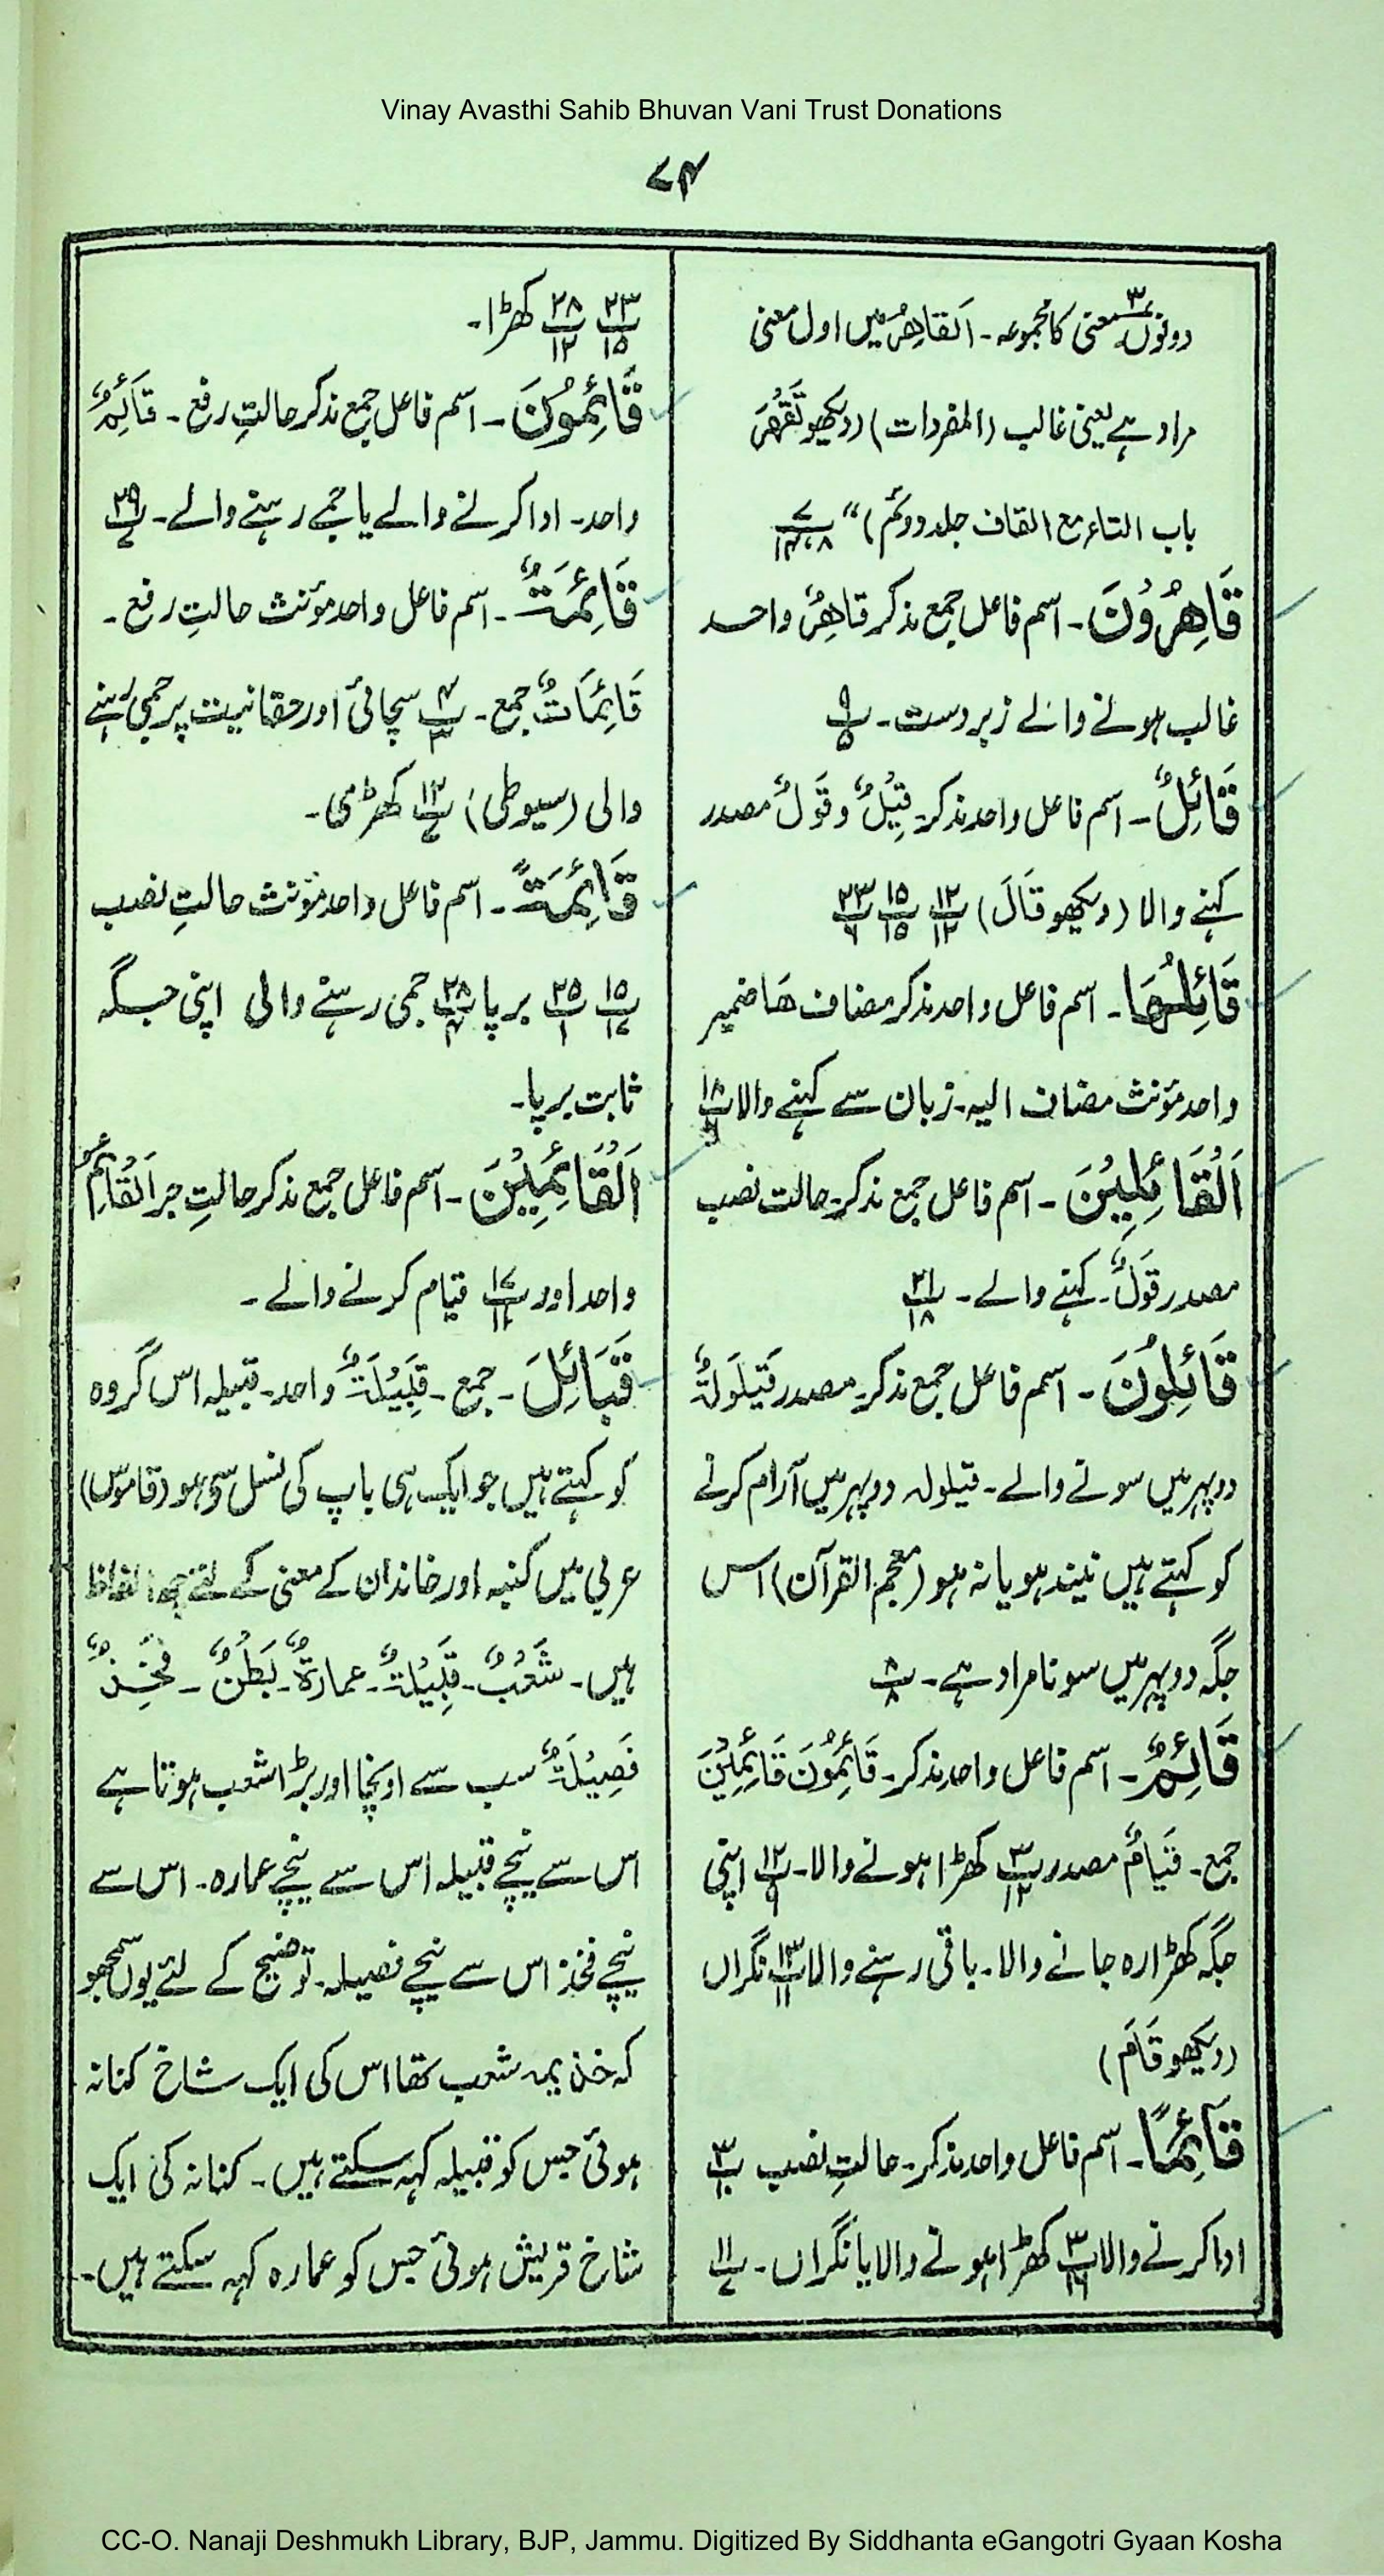 Vinay Avasthi Sahib Bhuvan Vani Trust Donations
۷۴
دونوں معنی کا مجموعہ۔ اَلْقَاهِرُ میں اول معنی
مراد ہے یعنی غالب (المفردات) (دیکھو تَقْهَرْ
باب التاء مع القاف جلد دوئم) ‘‘ پ۷ ۸،۱۴
قَاهِرُوْنَ۔ اسم فاعل جمع مذکر قَاهِرٌ واحد
غالب ہونے والے زبردست۔ پ۹ ۵
قَائِلٌ۔ اسم فاعل واحد مذکر۔ قِيْلٌ و قَوْلٌ مصدر
کہنے والا (دیکھو قَالَ) پ۱۲ ۱۲ پ۱۵ ۱۵ پ۲۳ ۶
قَائِلُهَا۔ اسم فاعل واحد مذکر مضاف هَا ضمیر
واحد مؤنث مضاف الیہ۔ زبان سے کہنے والا پ۱۸
اَلْقَائِلِيْنَ۔ اسم فاعل جمع مذکر۔ حالت نصب
مصدر قَوْلٌ۔ کہنے والے۔ پ۲۱ ۱۸
قَائِلُوْنَ۔ اسم فاعل جمع مذکر۔ مصدر قَيْلُوْلَةٌ
دوپہر میں سونے والے۔ قیلولہ دوپہر میں آرام کرنے
کو کہتے ہیں نیند ہو یا نہ ہو (معجم القرآن) اس
جگہ دوپہر میں سونا مراد ہے۔ پ۸ ۸
قَائِمٌ۔ اسم فاعل واحد مذکر۔ قَائِمُوْنَ قَائِمِيْنَ
جمع۔ قِيَامٌ مصدر پ۳ ۱۲ کھڑا ہونے والا۔ پ۱۲ ۹ اپنی
جگہ کھڑا رہ جانے والا۔ باقی رہنے والا پ۱۳ ۱۱ نگراں
(دیکھو قَامَ)
قَائِمًا۔ اسم فاعل واحد مذکر۔ حالتِ نصب پ۳ ۱۰
ادا کرنے والا پ۳ ۱۶ کھڑا ہونے والا یا نگراں۔ پ۱۱ ۷
پ۲۳ ۱۵ پ۲۸ ۱۲ کھڑا۔
قَائِمُوْنَ۔ اسم فاعل جمع مذکر حالتِ رفع۔ قَائِمٌ
واحد۔ ادا کرنے والے یا جمے رہنے والے۔ پ۲۹ ۷
قَائِمَةٌ۔ اسم فاعل واحد مؤنث حالتِ رفع۔
قَائِمَاتٌ جمع۔ پ۴ ۳ سچائی اور حقانیت پر جمی رہنے
والی (سیوطی) پ۱۲ ۷ کھڑی۔
قَائِمَةً۔ اسم فاعل واحد مؤنث حالتِ نصب
پ۱۵ ۱۷ پ۲۵ ۱ برپا پ۲۸ ۴ جمی رہنے والی اپنی جگہ
ثابت برپا۔
اَلْقَائِمِيْنَ۔ اسم فاعل جمع مذکر حالتِ جر اَلْقَائِمُ
واحد اور پ۱۷ ۱۱ قیام کرنے والے۔
قَبَائِلَ۔ جمع۔ قَبِيْلَةٌ واحد۔ قبیلہ اس گروہ
کو کہتے ہیں جو ایک ہی باپ کی نسل سے ہو (قاموس)
عربی میں کنبہ اور خاندان کے معنی کے لئے چھ الفاظ
ہیں۔ شَعْبٌ۔ قَبِيْلَةٌ۔ عمارةٌ۔ بَطْنٌ۔ فَخِذٌ
فَصِيْلَةٌ سب سے اونچا اور بڑا شعب ہوتا ہے
اس سے نیچے قبیلہ اس سے نیچے عمارہ۔ اس سے
نیچے فخذ اس سے نیچے فصیلہ۔ توضیح کے لئے یوں سمجھو
کہ خذیمہ شعب تھا اس کی ایک شاخ کنانہ
ہوئی جس کو قبیلہ کہہ سکتے ہیں۔ کنانہ کی ایک
شاخ قریش ہوئی جس کو عمارہ کہہ سکتے ہیں۔
CC-O. Nanaji Deshmukh Library, BJP, Jammu. Digitized By Siddhanta eGangotri Gyaan Kosha